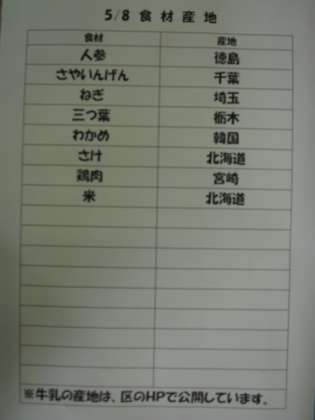 5/8 食材産地
食材 産地
人参 徳島
さやいんげん 千葉
ねぎ 埼玉
三つ葉 栃木
わかめ 韓国
さけ 北海道
鶏肉 宮崎
米 北海道
※牛乳の産地は、区のHPで公開しています。